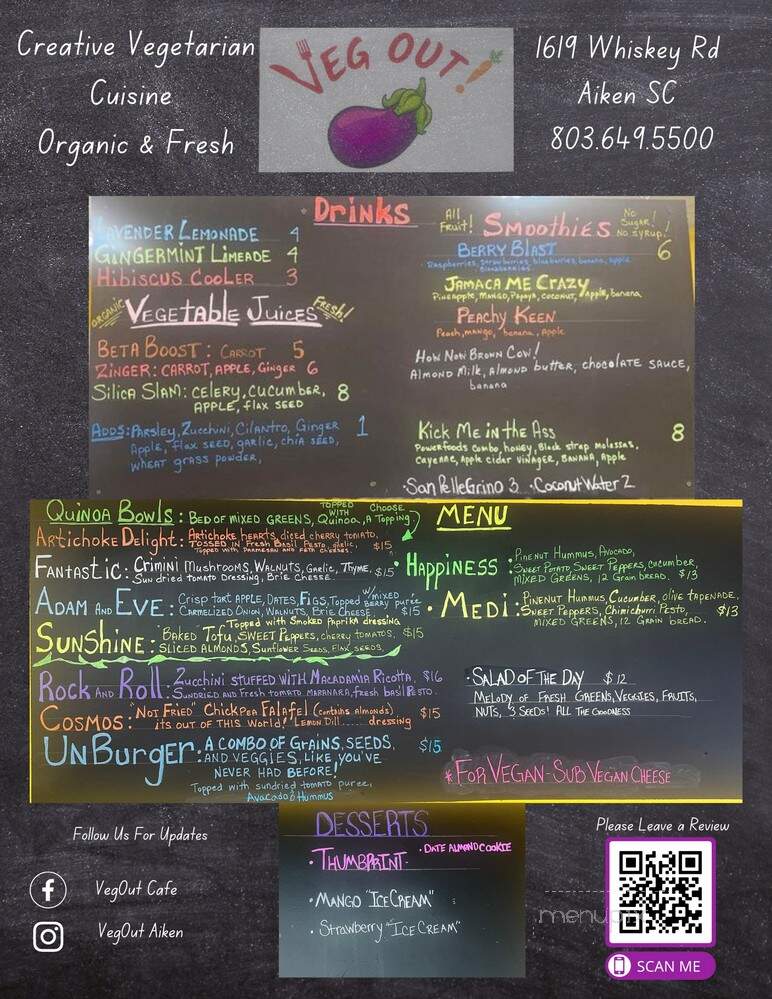 Creative Vegetarian
Cuisine
Organic & Fresh
VEG OUT!
1619 Whiskey Rd
Aiken SC
803.649.5500
Drinks
LAVENDER LEMONADE 4
GINGERMINT LIMEADE 4
HIBISCUS COOLER 3
ORGANIC VEGETABLE JUICES FRESH!
BETA BOOST: CARROT 5
ZINGER: CARROT, APPLE, GINGER 6
SILICA SLAM: CELERY, CUCUMBER, 8
APPLE, flax SEED
ADDS: PARSLEY, ZUCCHINI, CILANTRO, GINGER 1
Apple, flax SEED, garlic, chia SEED,
WHEAT GRASS POWDER,
All Fruit! SMOOTHIES No Sugar! No Syrup!
BERRY BLAST 6
Raspberries, strawberries, blueberries, banana, apple
JAMACA ME CRAZY
Pineapple, MANGO, Papaya, coconut, Apple, banana
PEACHY KEEN
Peach, mango, banana, Apple
HOW NOW BROWN COW!
ALMOND MILK, ALMOND butter, chocolate SAUCE,
banana
KICK ME IN THE ASS 8
POWERFOODS COMBO, HONEY, Black strap molassas,
cayenne, Apple cider VINAGER, BANANA, Apple
·San PelleGrino 3 ·Coconut Water 2
QUINOA BOWLS: BED OF MIXED GREENS, QUINOA, TOPPED WITH CHOOSE A TOPPING
ARTICHOKE DELIGHT: Artichoke hearts, diced cherry tomato,
TOSSED IN FRESH BASIL PESTO, garlic, $15
Topped with PARMESAN AND FETA CHEESES.
FANTASTIC: CRIMINI MUSHROOMS, WALNUTS, GARLIC, THYME, $15
Sun dried tomato Dressing, Brie Cheese
ADAM AND EVE: CRISP TART APPLE, DATES, FIGS, Topped w/mixed BERRY puree
CARMELIZED ONION, WALNUTS, BRIE CHEESE $15
SUNSHINE: Topped with SMOKED PAPRIKA dressing
BAKED TOFU, SWEET PEPPERS, cherry tomatoS, $15
SLICED ALMONDS, Sunflower Seeds, Flax SEEDS
ROCK AND ROLL: Zucchini STUFFED WITH MACADAMIA RICOTTA, $16
SUNDRIED AND Fresh tomato MARANARA, fresh basil PESTO.
COSMOS: "NOT FRIED" CHICKPEA FALAFEL (contains almonds) $15
ITS OUT OF THIS World! LEMON Dill .... dressing
UNBURGER: A COMBO OF GRAINS, SEEDS, $15
AND VEGGIES, LIKE YOU'VE
NEVER HAD BEFORE!
Topped with sundried tomato puree,
Avacado & Hummus
MENU
· HAPPINESS: PINENUT HUMMUS, AVOCADO,
SWEET POTATO, SWEET PEPPERS, CUCUMBER,
MIXED GREENS, 12 Grain bread. $13
· MEDI: PINENUT HUMMUS, CUCUMBER, olive TAPENADE,
SWEET PEPPERS, Chimichurri Pesto, $13
MIXED GREENS, 12 GRAIN BREAD.
·SALAD OF THE DAY $12
MELODY OF FRESH GREENS, VEGGIES, FRUITS,
NUTS, & SEEDS! ALL THE GOODNESS
*FOR VEGAN - SUB VEGAN CHEESE
DESSERTS
·THUMBPRINT· ·DATE ALMOND COOKIE
·MANGO "ICE CREAM"
·Strawberry "ICE CREAM"
Follow Us For Updates
VegOut Cafe
VegOut Aiken
Please Leave a Review
SCAN ME